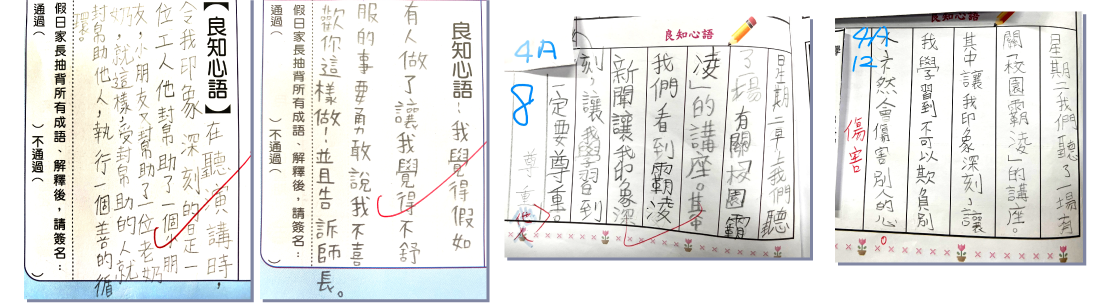 【良知心語】在聽演講時，
令我印象深刻的是一
位工人他封幫助了一個小朋
友，小朋友又封幫助了一位老奶
奶，就這樣，受封幫助的人就
封幫助他人，執行一個善的循
環
假日家長抽背所有成語、解釋後，請簽名：
通過（　）不通過（　）
良知心語：我覺得假如
有人做了讓我覺得不舒
服的事要勇敢說我不喜
歡你這樣做！並且告訴師長。
假日家長抽背所有成語、解釋後，請簽名：
通過（　）不通過（　）
良知心語
星期二早上我們聽
了一場有關校園霸
凌」的講座。其中
我們看到霸凌
新聞讓我印象深
刻，讓我學習到
一定要尊重。
尊重他人
4A
8
良知心語
星期二我們聽了一場有
關「校園霸凌」的講座。
其中讓我印象深刻，讓
我學習到不可以欺負別
人，不然會傷害別人的心
傷害
4A
12